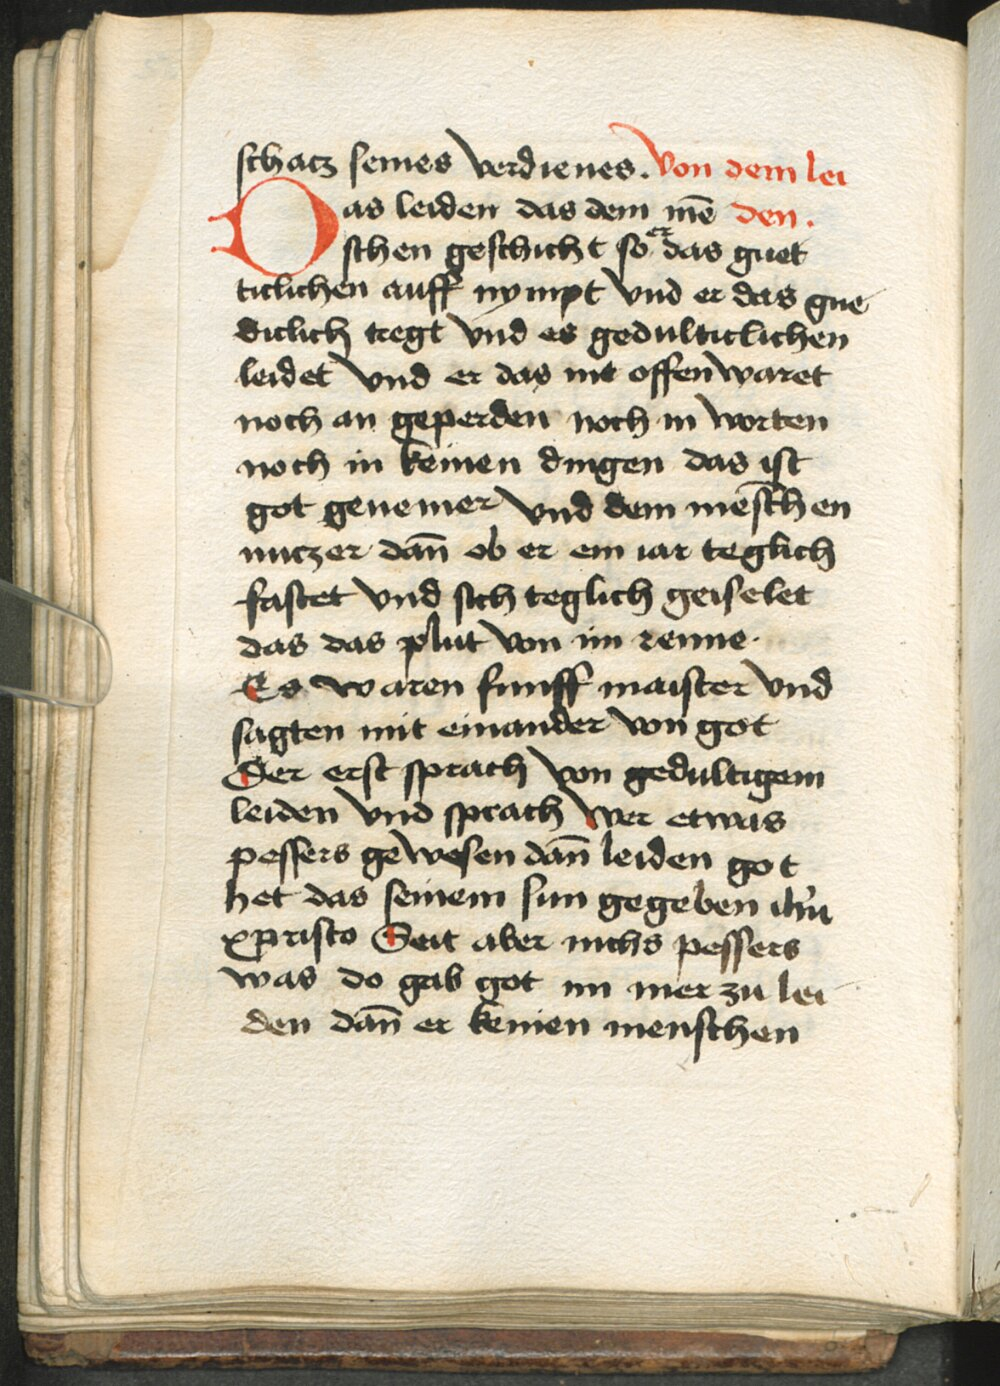 schacz seines verdienes. Von dem lei
Das leiden das dem mē den.
schen geschicht so er das guet
ticlichen auff nympt vnd er das gue
diclich tregt vnd es gedulticlichen
leidet vnd er das nit offenwaret
noch an geperden noch in worten
noch in keinen dingen das ist
got genemer vnd dem mēschen
nuczer dañ ob er ein iar teglich
fastet vnd sich teglich geiselet
das das plut von im renne.
Es waren funff maister vnd
sagten mit einander von got
Der erst sprach von gedultigem
leiden vnd sprach wer etwas
pessers gewesen dañ leiden got
het das seinem sun gegeben ihu
xpristo Seit aber nichs pessers
was do gab got im mer zu lei
den dañ er keinen menschen